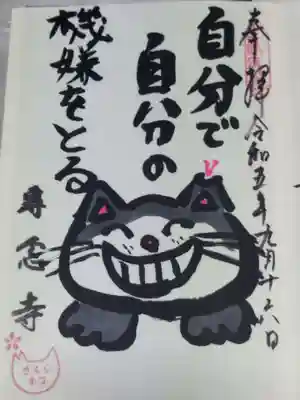 奉拝 令和五年九月十六日
自分で
自分の
機嫌をとる
専念寺